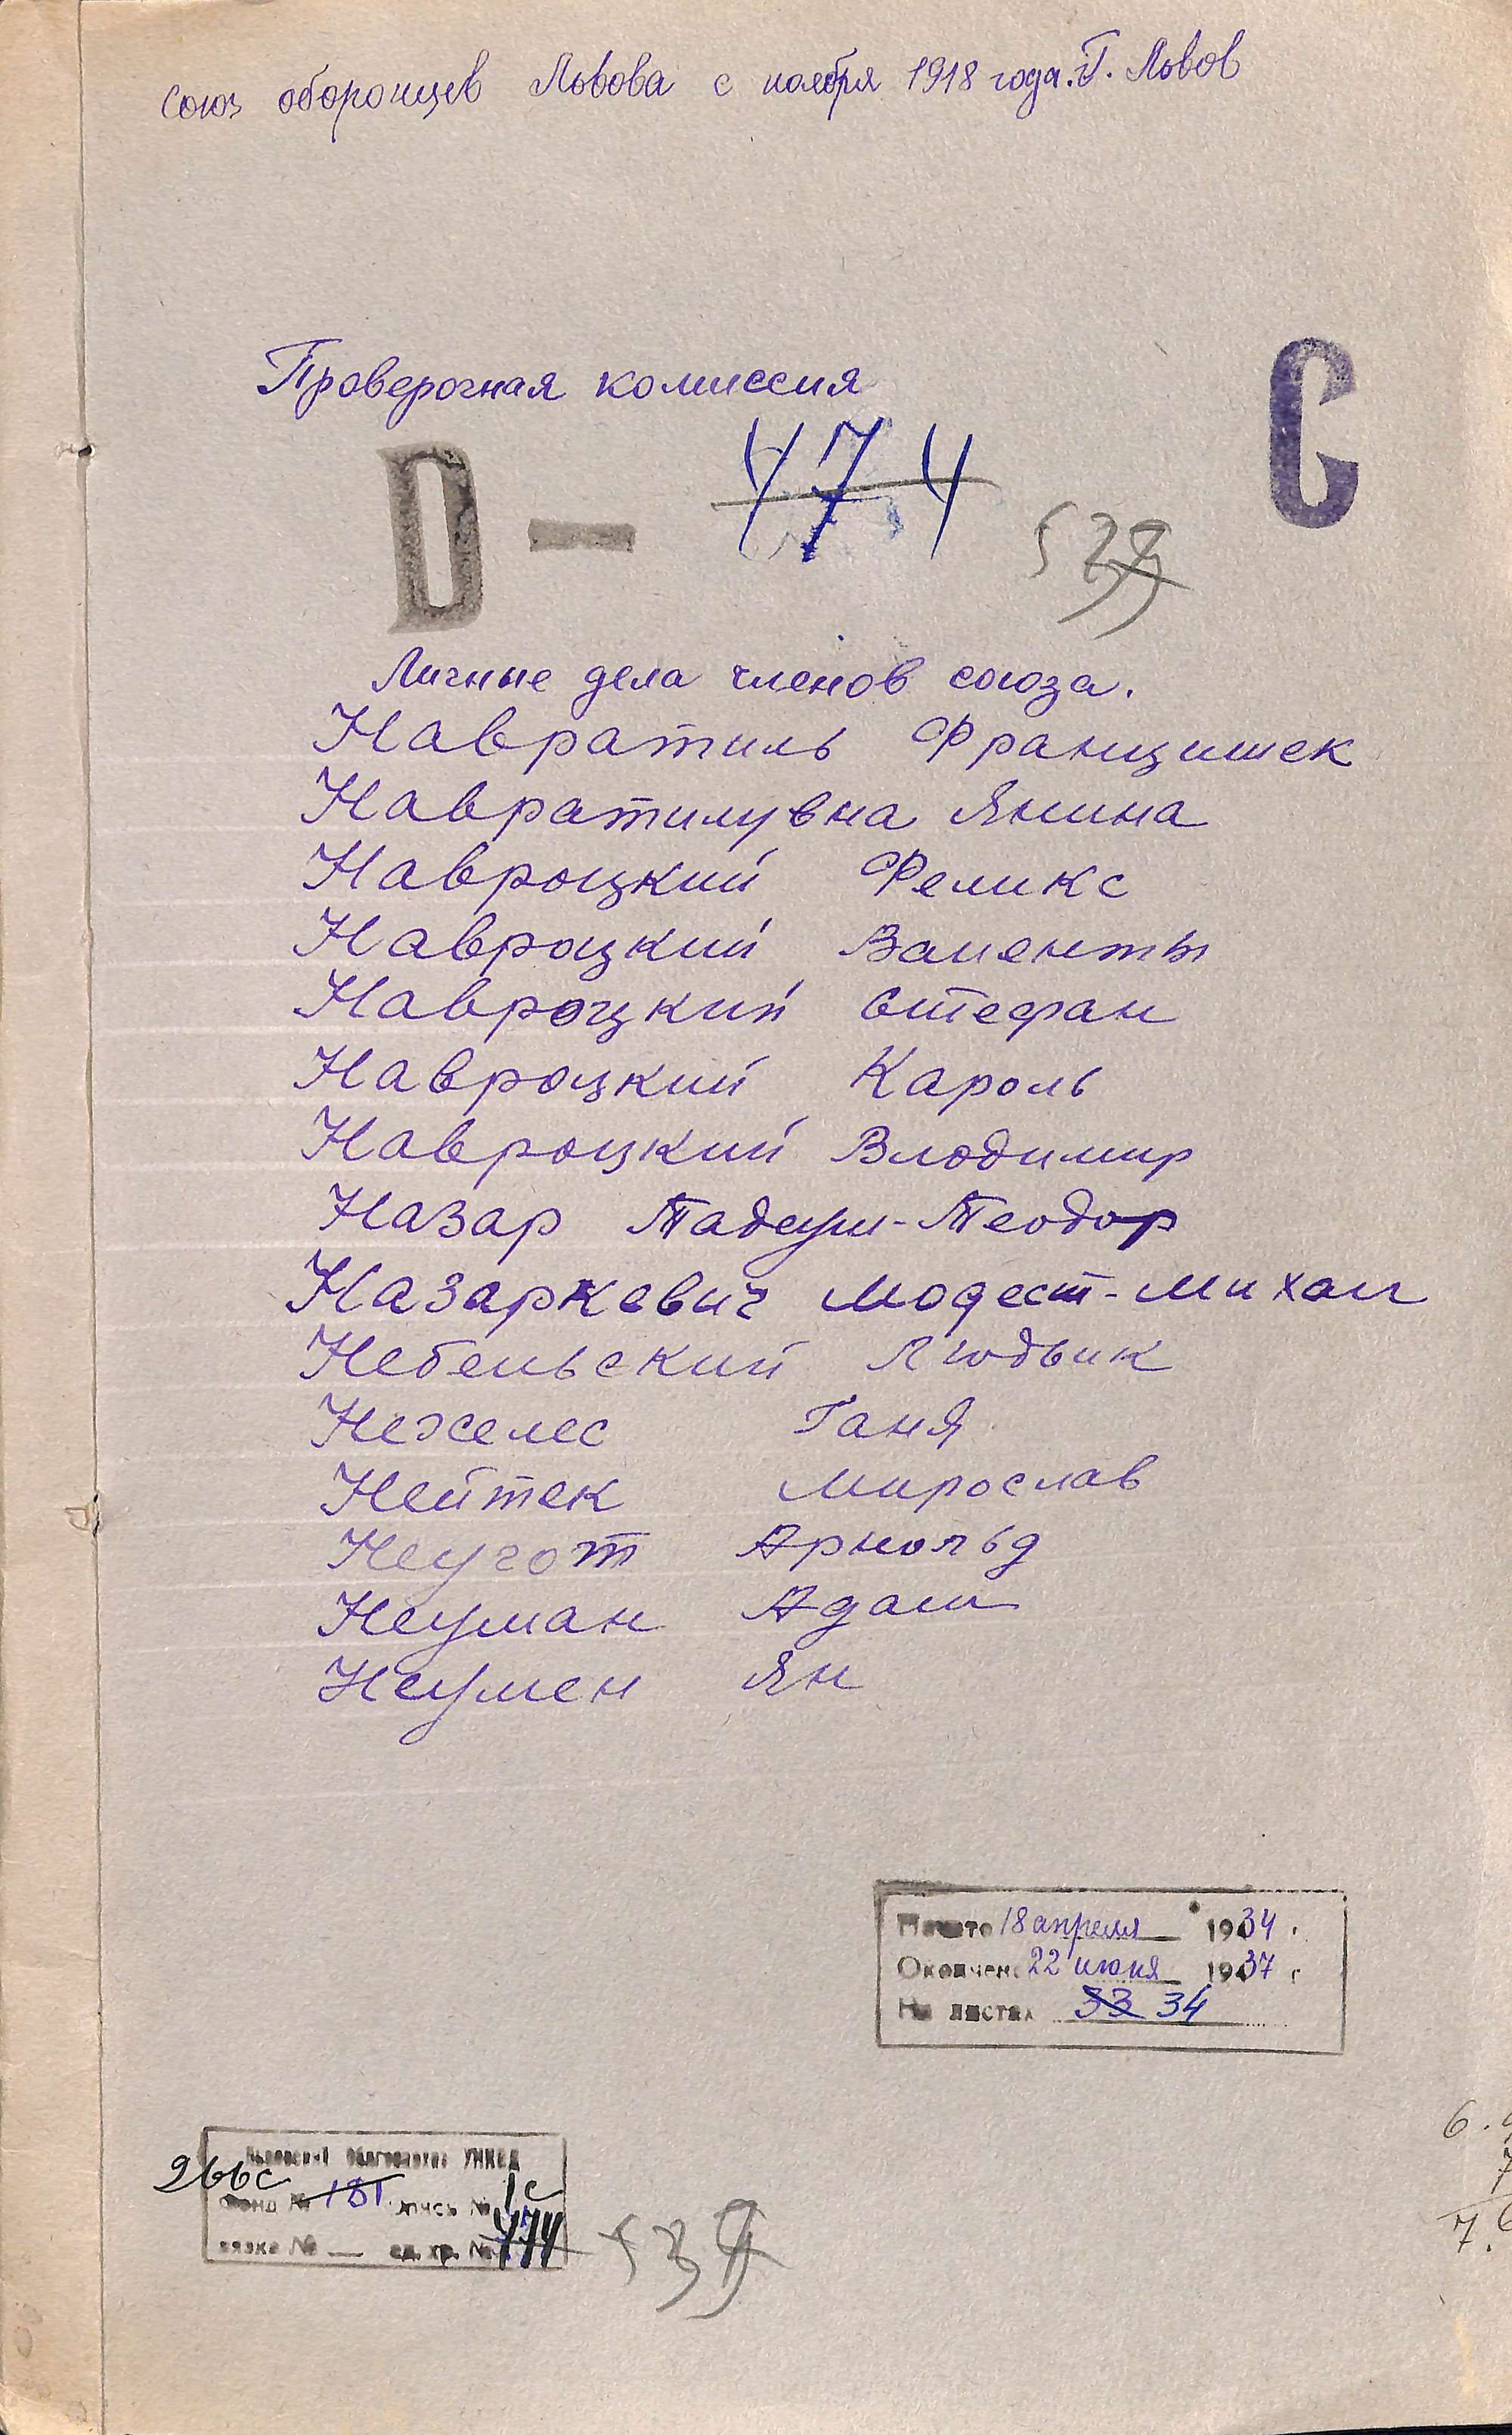 Союз оборонцев Львова с ноября 1918 года. Г. Львов
Проверочная комиссия
С
D — 474
Личные дела членов союза.
Навратиль Францишек
Навратилувна Янина
Навроцкий Феликс
Навроцкий Валенты
Навроцкий Стефан
Навроцкий Кароль
Навроцкий Влодимир
Назар Тадеуш-Теодор
Назаркевич Модест-Михал
Небельский Людвик
Нежелес Ганя
Нейтек Мирослав
Неугот Арнольд
Неуман Адам
Неумен Ян
Начато 18 апреля 1934 г.
Окончено 22 июня 1937 г
На листах 33 34
Львовский Облгосархив УНКВД
266с
Фонд № 181 опись № 1с
вязка № — ед. хр. № 474